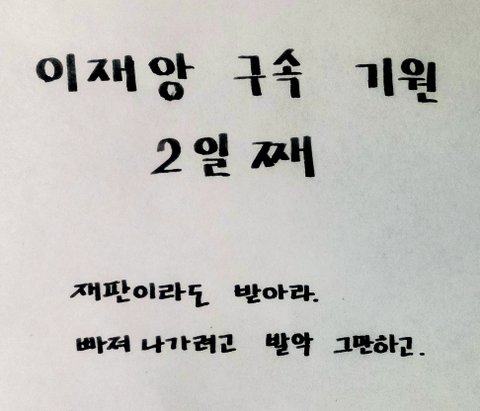 이재앙 구속 기원
2일째
재판이라도 받아라.
빠져나가려고 발악 그만하고.